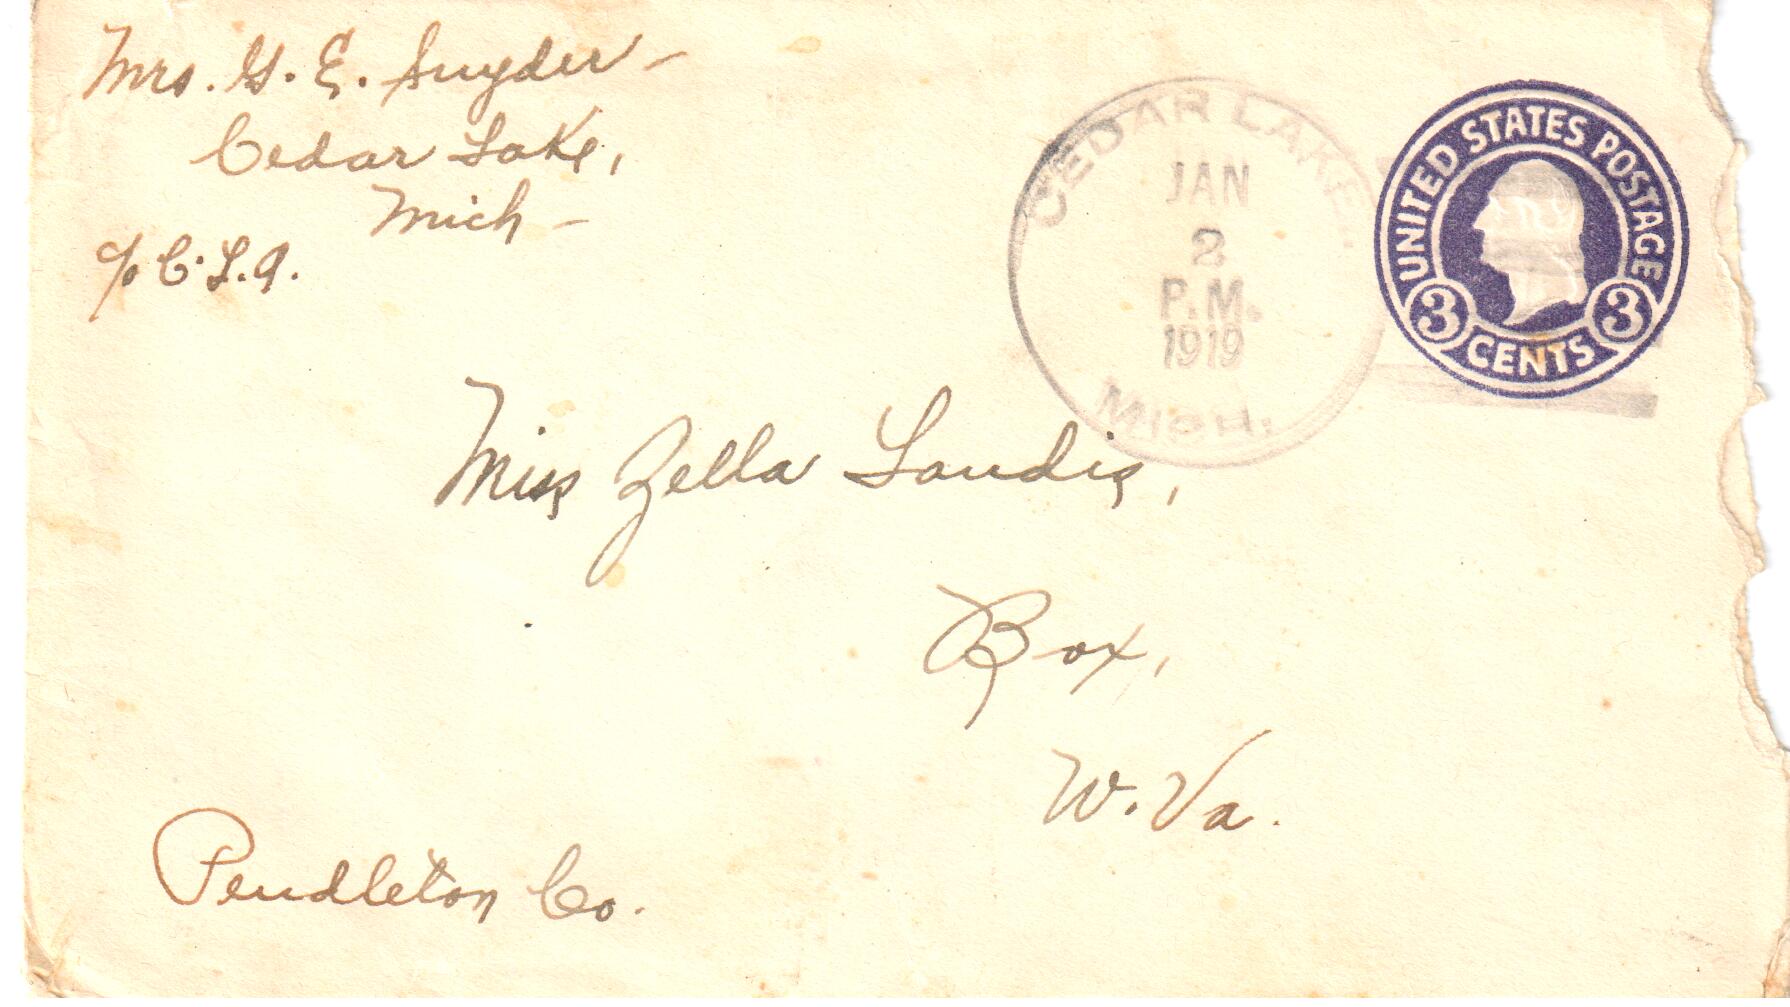 Mrs. G. E. Snyder -
Cedar Lake,
Mich -
c/o C. L. A.
CEDAR LAKE.
JAN
2
P.M.
1919
MICH.
UNITED STATES POSTAGE
3 CENTS 3
Miss Zella Landis,
Box,
W. Va.
Pendleton Co.